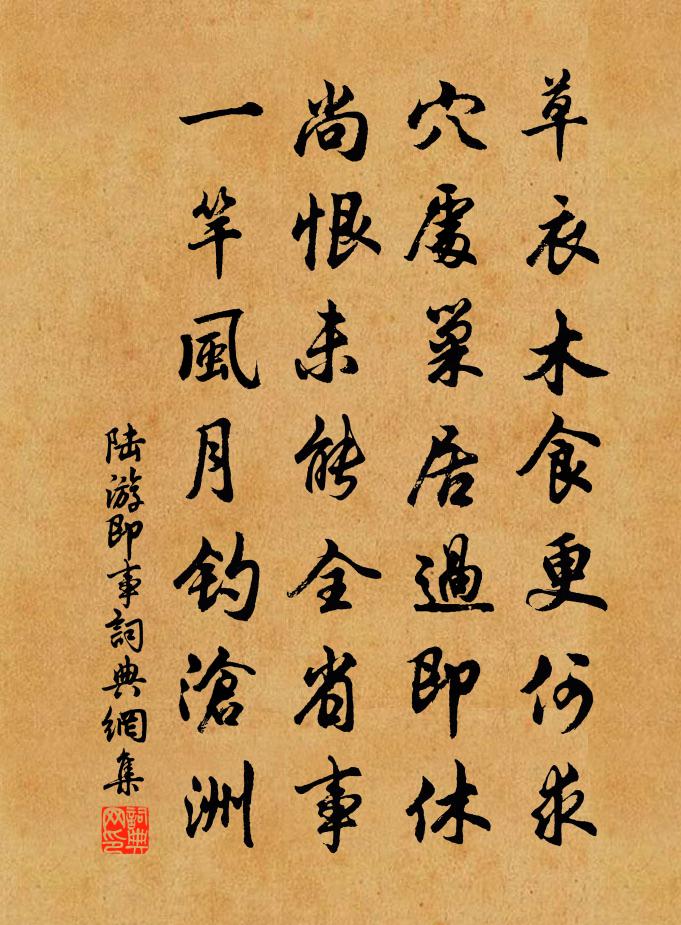 草衣木食更何求
穴處巢居過即休
尚恨未能全省事
一竿風月釣滄洲
陆游即事詞典網集
詞典网印